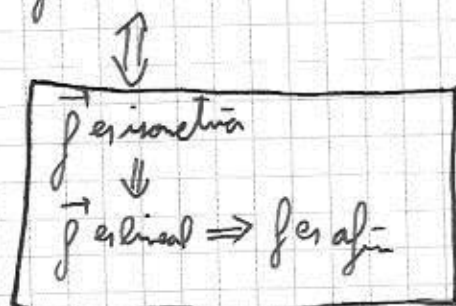 ⇕
f⃗ es isometría
⇓
f⃗ es lineal ⇒ f es afín